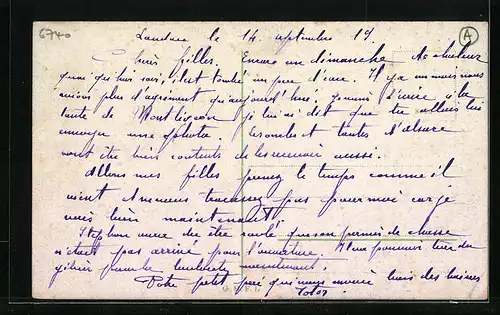 6740
Landau le 14 septembre 19.
A
Chères filles. Encore un dimanche de chaleur
quoi que hier soir, il est tombé un peu d'eau. Il y a un mois nous
avions plus d'agrément qu'aujourd'hui, je viens d'écrire à la
tante de Montlignon je lui ai dit que tu allais lui
envoyer une photo. les oncles et tantes d'alsace
vont être bien contents de les recevoir aussi.
Allons mes filles prenez le temps comme il
vient A ne vous tracassez pas pour moi car je
suis bien maintenant.
Stephan aura du être que son permis de chasse
n'était pas arrivé pour l'ouverture. Il ne pourra tuer du
gibier maintenant.
Votre petit père qui vous envoie bien des baisers